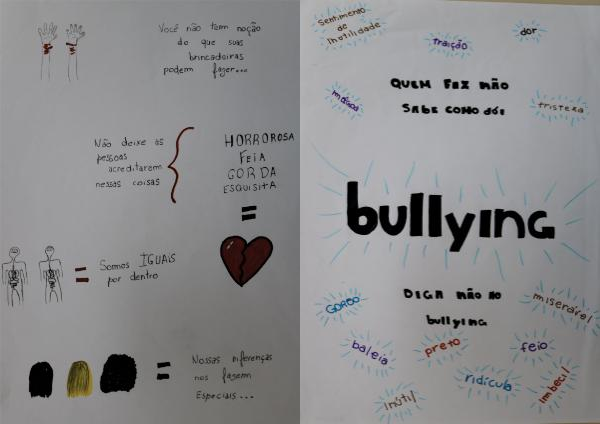 Você não tem noção
do que suas
brincadeiras
podem fazer...
Não deixe as
pessoas
acreditarem
nessas coisas
HORROROSA
FEIA
GORDA
ESQUISITA
=
= Somos IGUAIS
por dentro
= Nossas diferenças
nos fazem
Especiais...
Sentimento
de
Inutilidade
TRAIÇÃO
dor
mágoa
tristeza
QUEM FAZ NÃO
SABE COMO DÓI
bullying
DIGA NÃO AO
bullying
GORDO
miserável
baleia
preto
feio
ridícula
imbecil
inútil